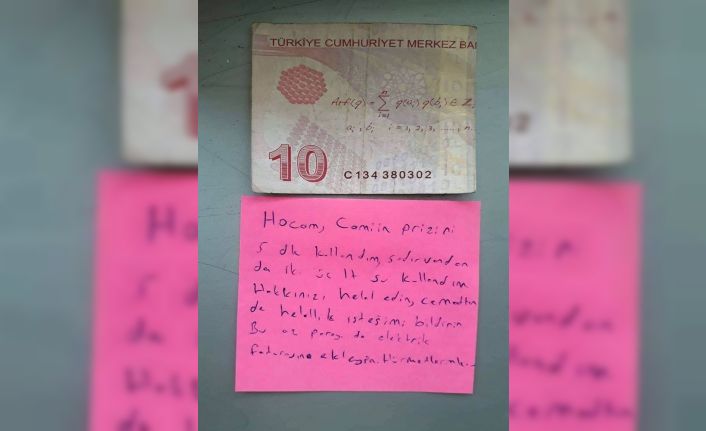 TÜRKİYE CUMHURİYET MERKEZ BA
Arf(q) = Σ q(aᵢ) q(bᵢ) ∈ Z
n
i=1
aᵢ, bᵢ i = 1, 2, 3, ....., n
10
C134 380302
Hocam, Camiin prizini
5 dk kullandım, şadırvandan
da iki üç lt su kullandım
Hakkınızı helal edin, cemaatten
de helallik isteğimi bildirin
Bu az parayı da elektrik
faturasına ekleyin. Hürmetlerimle